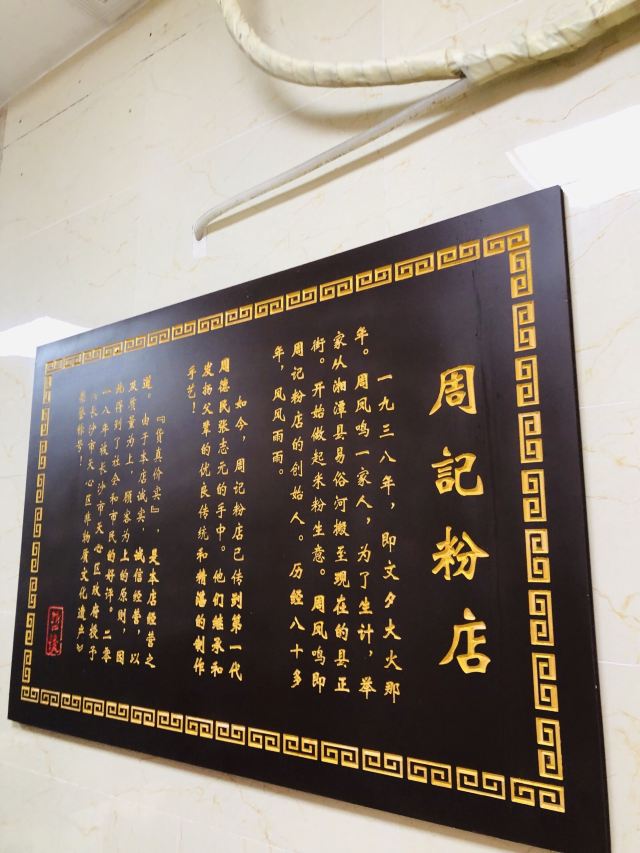 周記粉店
一九三八年，即文夕大火那
年。周凤鸣一家人，为了生计，举
家从湘潭县易俗河搬至现在的县正
街。开始做起米粉生意。周凤鸣即
周记粉店的创始人。历经八十多
年，风风雨雨。
如今，周记粉店已传到第一代
周德民张志元的手中。他们继承和
发扬父辈的优良传统和精湛的制作
手艺！
『货真价实』，是本店经营之
道。由于本店诚实，诚信经营，以
及质量为上，顾客为上的原则，因
此得到了社会和市民的好评。二零
一八年被长沙市天心区政府授予
《长沙市天心区非物质文化遗产》
荣誉称号！